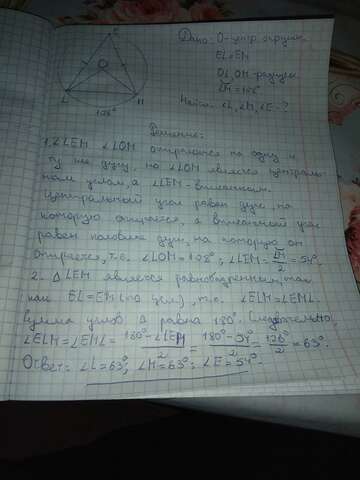 Дано: О-центр окружн.
EL=EM
OL, OM-радиусы
LM=108°
Найти: ∠L, ∠M, ∠E-?
E
O
L
M
108°
Решение:
1. ∠LEM ∠LOM опираются на одну и
ту же дугу, но ∠LOM является централь-
ным углом, а ∠LEM-вписанным.
Центральный угол равен дуге, на
которую опирается, а вписанный угол
равен половине дуги, на которую он
опирается, т.е. ∠LOM=108°; ∠LEM=LM/2=54°.
2. △LEM является равнобедренным, так
как EL=EM (по усл), т.е. ∠ELM=∠EML.
Сумма углов △ равна 180°. Следовательно
∠ELM=∠EML=180°-∠LEM/2=180°-54°/2=126°/2=63°.
Ответ: ∠L=63°; ∠M=63°; ∠E=54°.